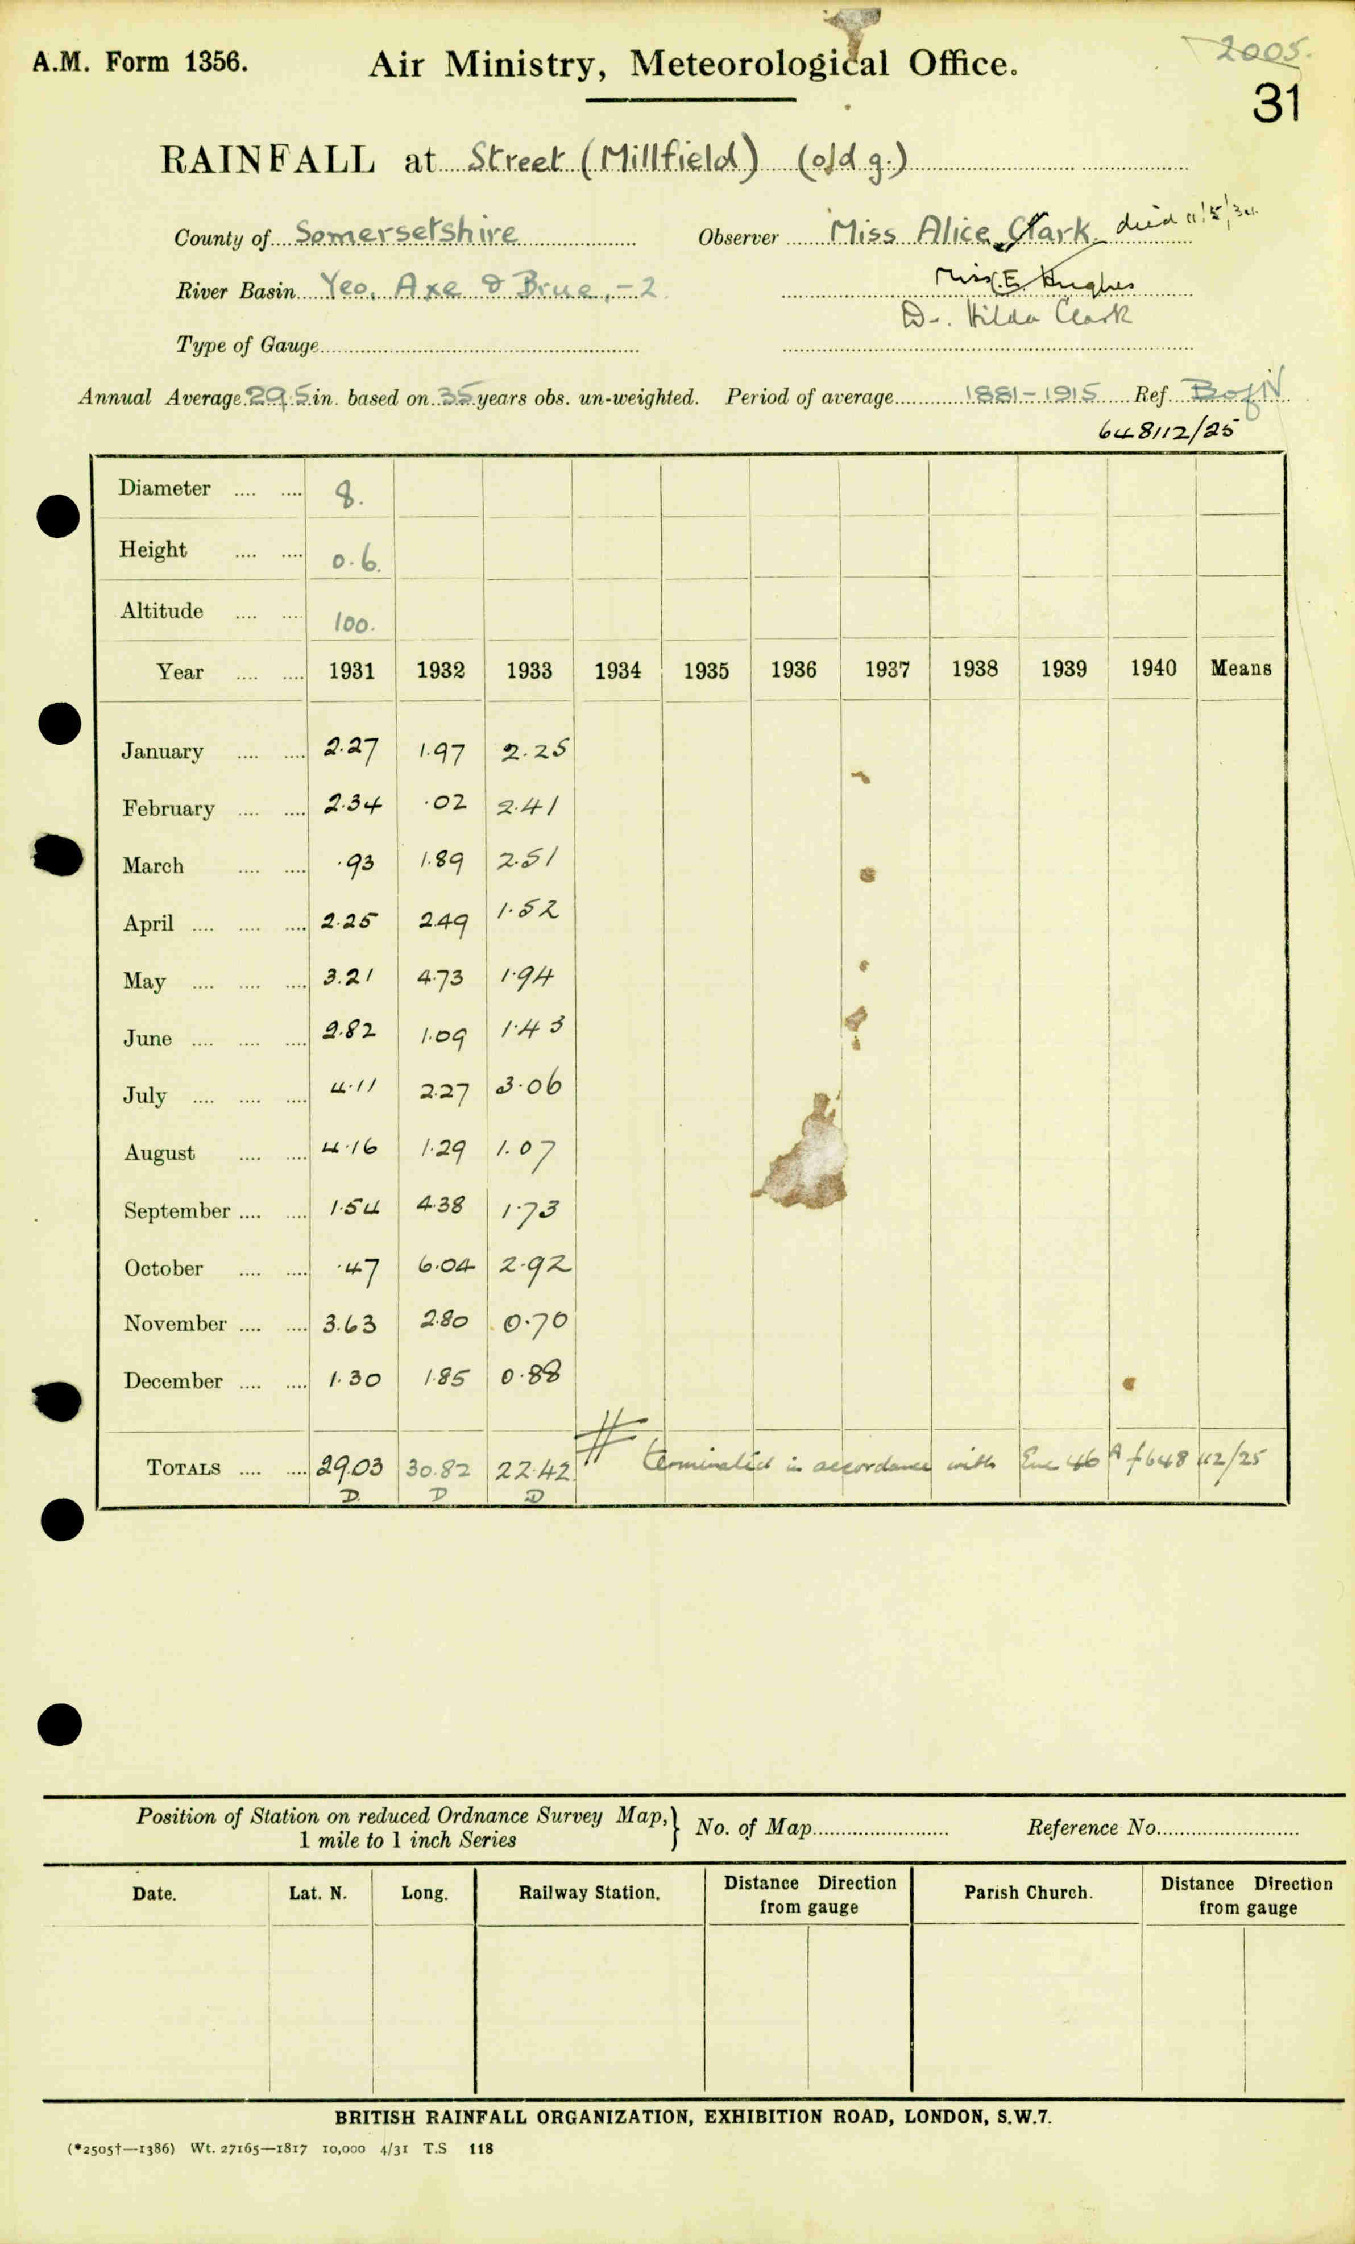 2005.
A.M. Form 1356. Air Ministry, Meteorological Office.
31
RAINFALL at Street (Millfield) (old g.)
County of Somersetshire Observer Miss Alice Clark died 11/5/34
River Basin Yeo, Axe & Brue, -2 Miss E. Hughes
Dr. Hilda Clark
Type of Gauge
Annual Average 29.5 in. based on 35 years obs. un-weighted. Period of average 1881-1915 Ref. B of IV
648112/25
Diameter .... .... 8.
Height .... .... 0.6.
Altitude .... .... 100.
Year .... .... 1931 1932 1933 1934 1935 1936 1937 1938 1939 1940 Means
January .... .... 2.27 1.97 2.25
February .... .... 2.34 .02 2.41
March .... .... .93 1.89 2.51
April .... .... .... 2.25 2.49 1.52
May .... .... .... 3.21 4.73 1.94
June .... .... .... 2.82 1.09 1.43
July .... .... .... 4.11 2.27 3.06
August .... .... 4.16 1.29 1.07
September .... .... 1.54 4.38 1.73
October .... .... .47 6.04 2.92
November .... .... 3.63 2.80 0.70
December .... .... 1.30 1.85 0.88
TOTALS .... .... 29.03 30.82 22.42 # terminated in accordance with Enc 46A f 648112/25
D D D
Position of Station on reduced Ordnance Survey Map,} No. of Map Reference No.
1 mile to 1 inch Series
Date. Lat. N. Long. Railway Station. Distance Direction Parish Church. Distance Direction
from gauge from gauge
BRITISH RAINFALL ORGANIZATION, EXHIBITION ROAD, LONDON, S.W.7.
(*2505†—1386) Wt. 27165—1817 10,000 4/31 T.S 118